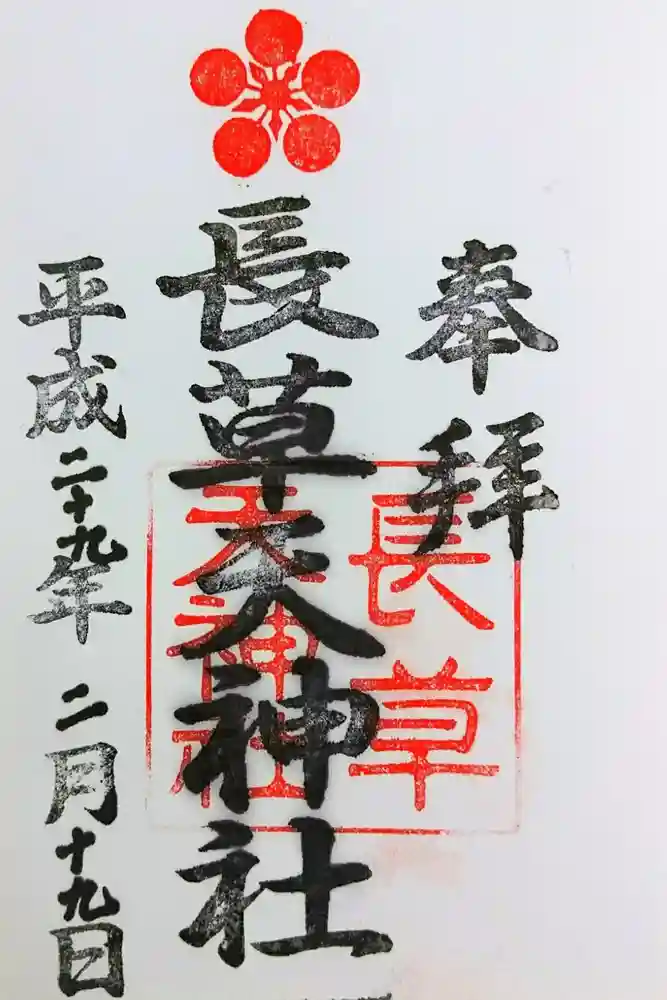 奉拝
長草天神社
長草
天神社
平成二十九年二月十九日